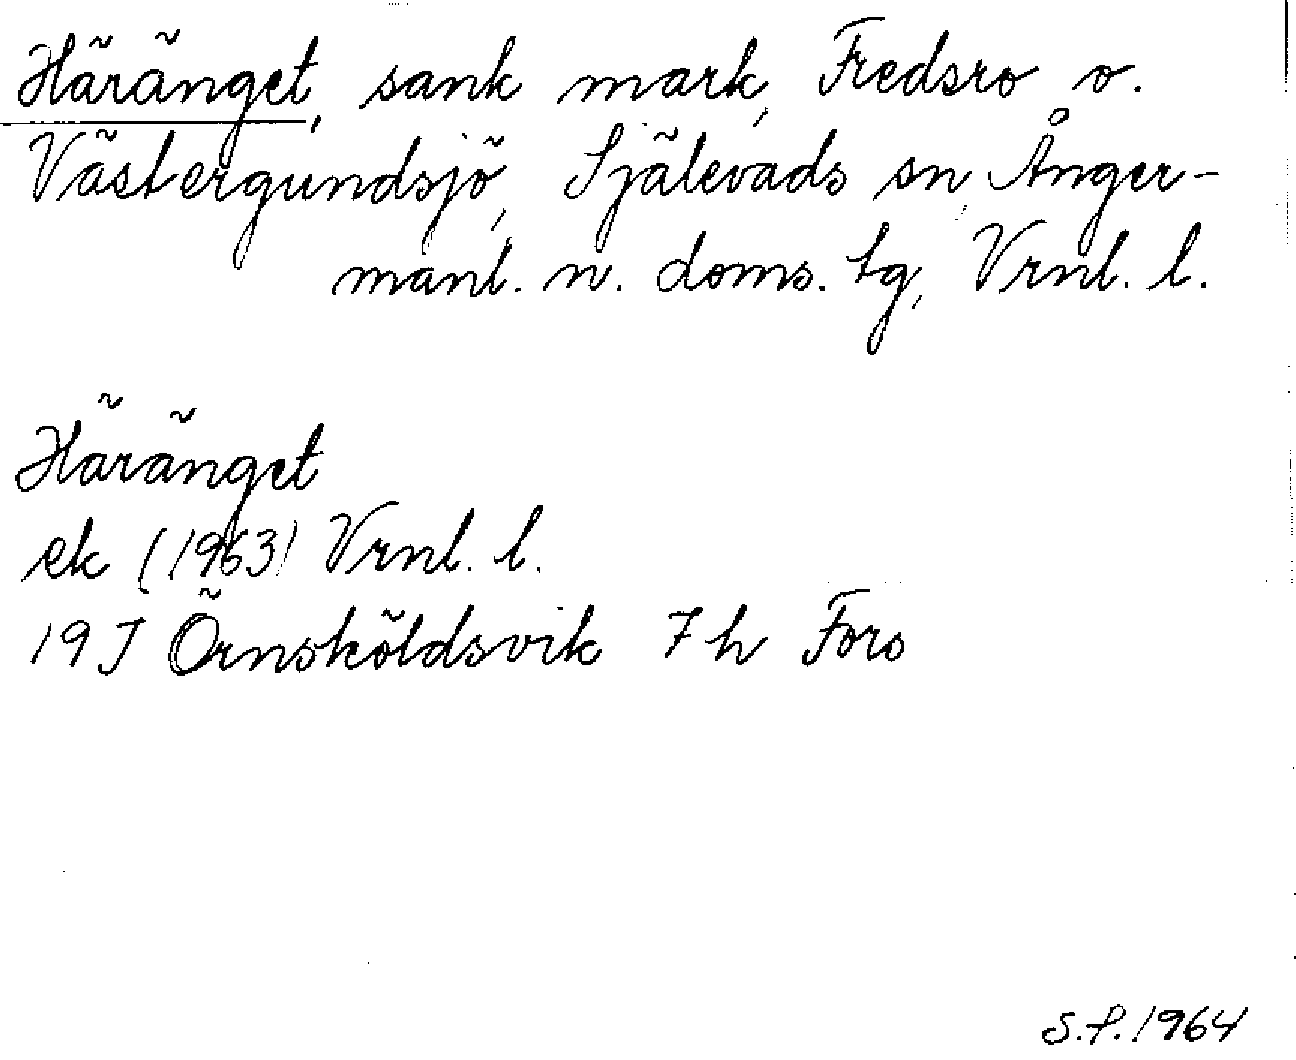 Häränget, sank mark, Fredsro o.
Västergundsjö, Själevads sn, Ånger-
manl. n. doms. tg, Vrnl. l.
Häränget
ek (1963) Vrnl. l.
19J Örnsköldsvik 7h Fors
S.P. 1964